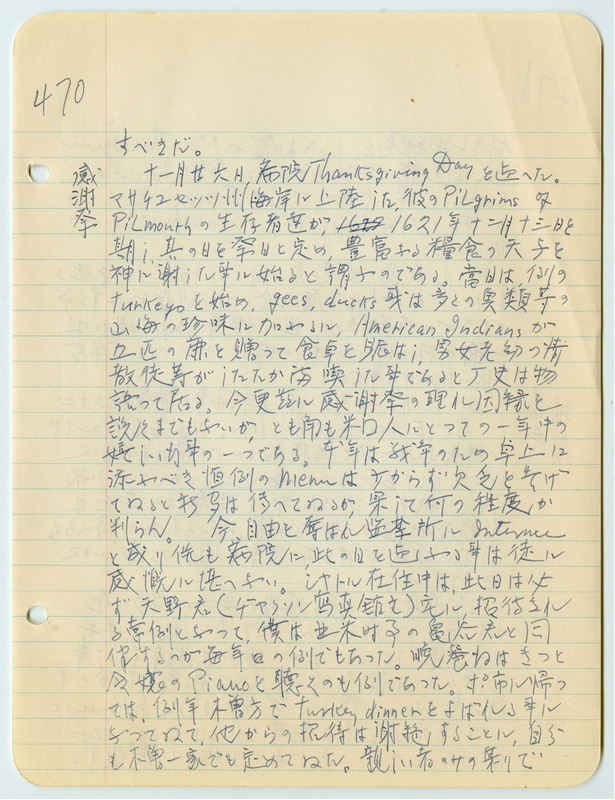 470
すべきだ。
感謝祭
十一月廿六日、病院Thanksgiving Dayを迎へた。
マサチユセッツ州海岸に上陸した彼のPilgrims及
Pilmouthの生存者達が、1621年十二月十三日を
期し、其の日を祭日と定め、豊富なる糧食の天与を
神に謝した事に始ると謂ふのである。當日は、例の
turkeyを始め、gees, ducks或は多くの魚類等の
山海の珍味に加わるに、American Indiansが
五匹の鹿を贈つて食卓を賑はし、男女老幼の清
教徒等がしたたか満喫した事であると歴史は物
語つて居る。今更茲に感謝祭の理れ因縁を
説くまでもないが、とも角も米国人にとつての一年中の
嬉しい行事の一つである。本年は戦争のため卓上に
添ふべき恒例のmenuは少からず欠乏を告げ
てゐると新聞は傳へてゐるが、果して何の程度か
判らん。 今、自由を奪はれ監禁所にInternee
と成り侘も病院に、此の日を迎ふる事は徒に
感慨に堪へない。シヤトル在住中は、此日は必
ず天野君(ヂヤクソン寫真館主)宅に、招待され
る常例となつて、僕は亜米時事の亀谷君と同
伴するのが毎年の例でもあつた。晩餐ねはきつと
令嬢のPianoを聴くのも例であつた。ポ市に帰つ
ては、例年木曽方でturkey dinnerとよばれる事に
なつてゐて、他からの招待は謝絶することに、自分
も木曽一家でも定めてゐた。親しい者のみの集りで